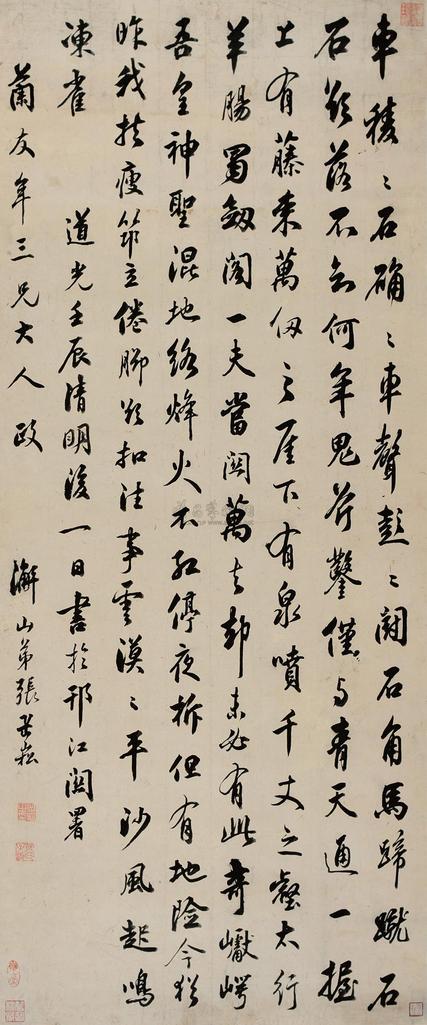 車稜〻石确〻車聲彭〻闘石角馬蹄蹴石
石欲落不知何年鬼斧鑿僅與青天通一握
上有藤束萬仞之厓下有泉噴千丈之壑太行
羊腸蜀劔閣一夫當關萬夫却未必有此奇巘崿
吾皇神聖混地絡烽火不紅停夜柝但有地險今猶
昨我扶瘦筇立倦脚欲扣往事雲漠〻平沙風起鳴
凍雀
道光壬辰清明後一日書於邗江關署
蘭友年三兄大人政
澥山弟張岳崧